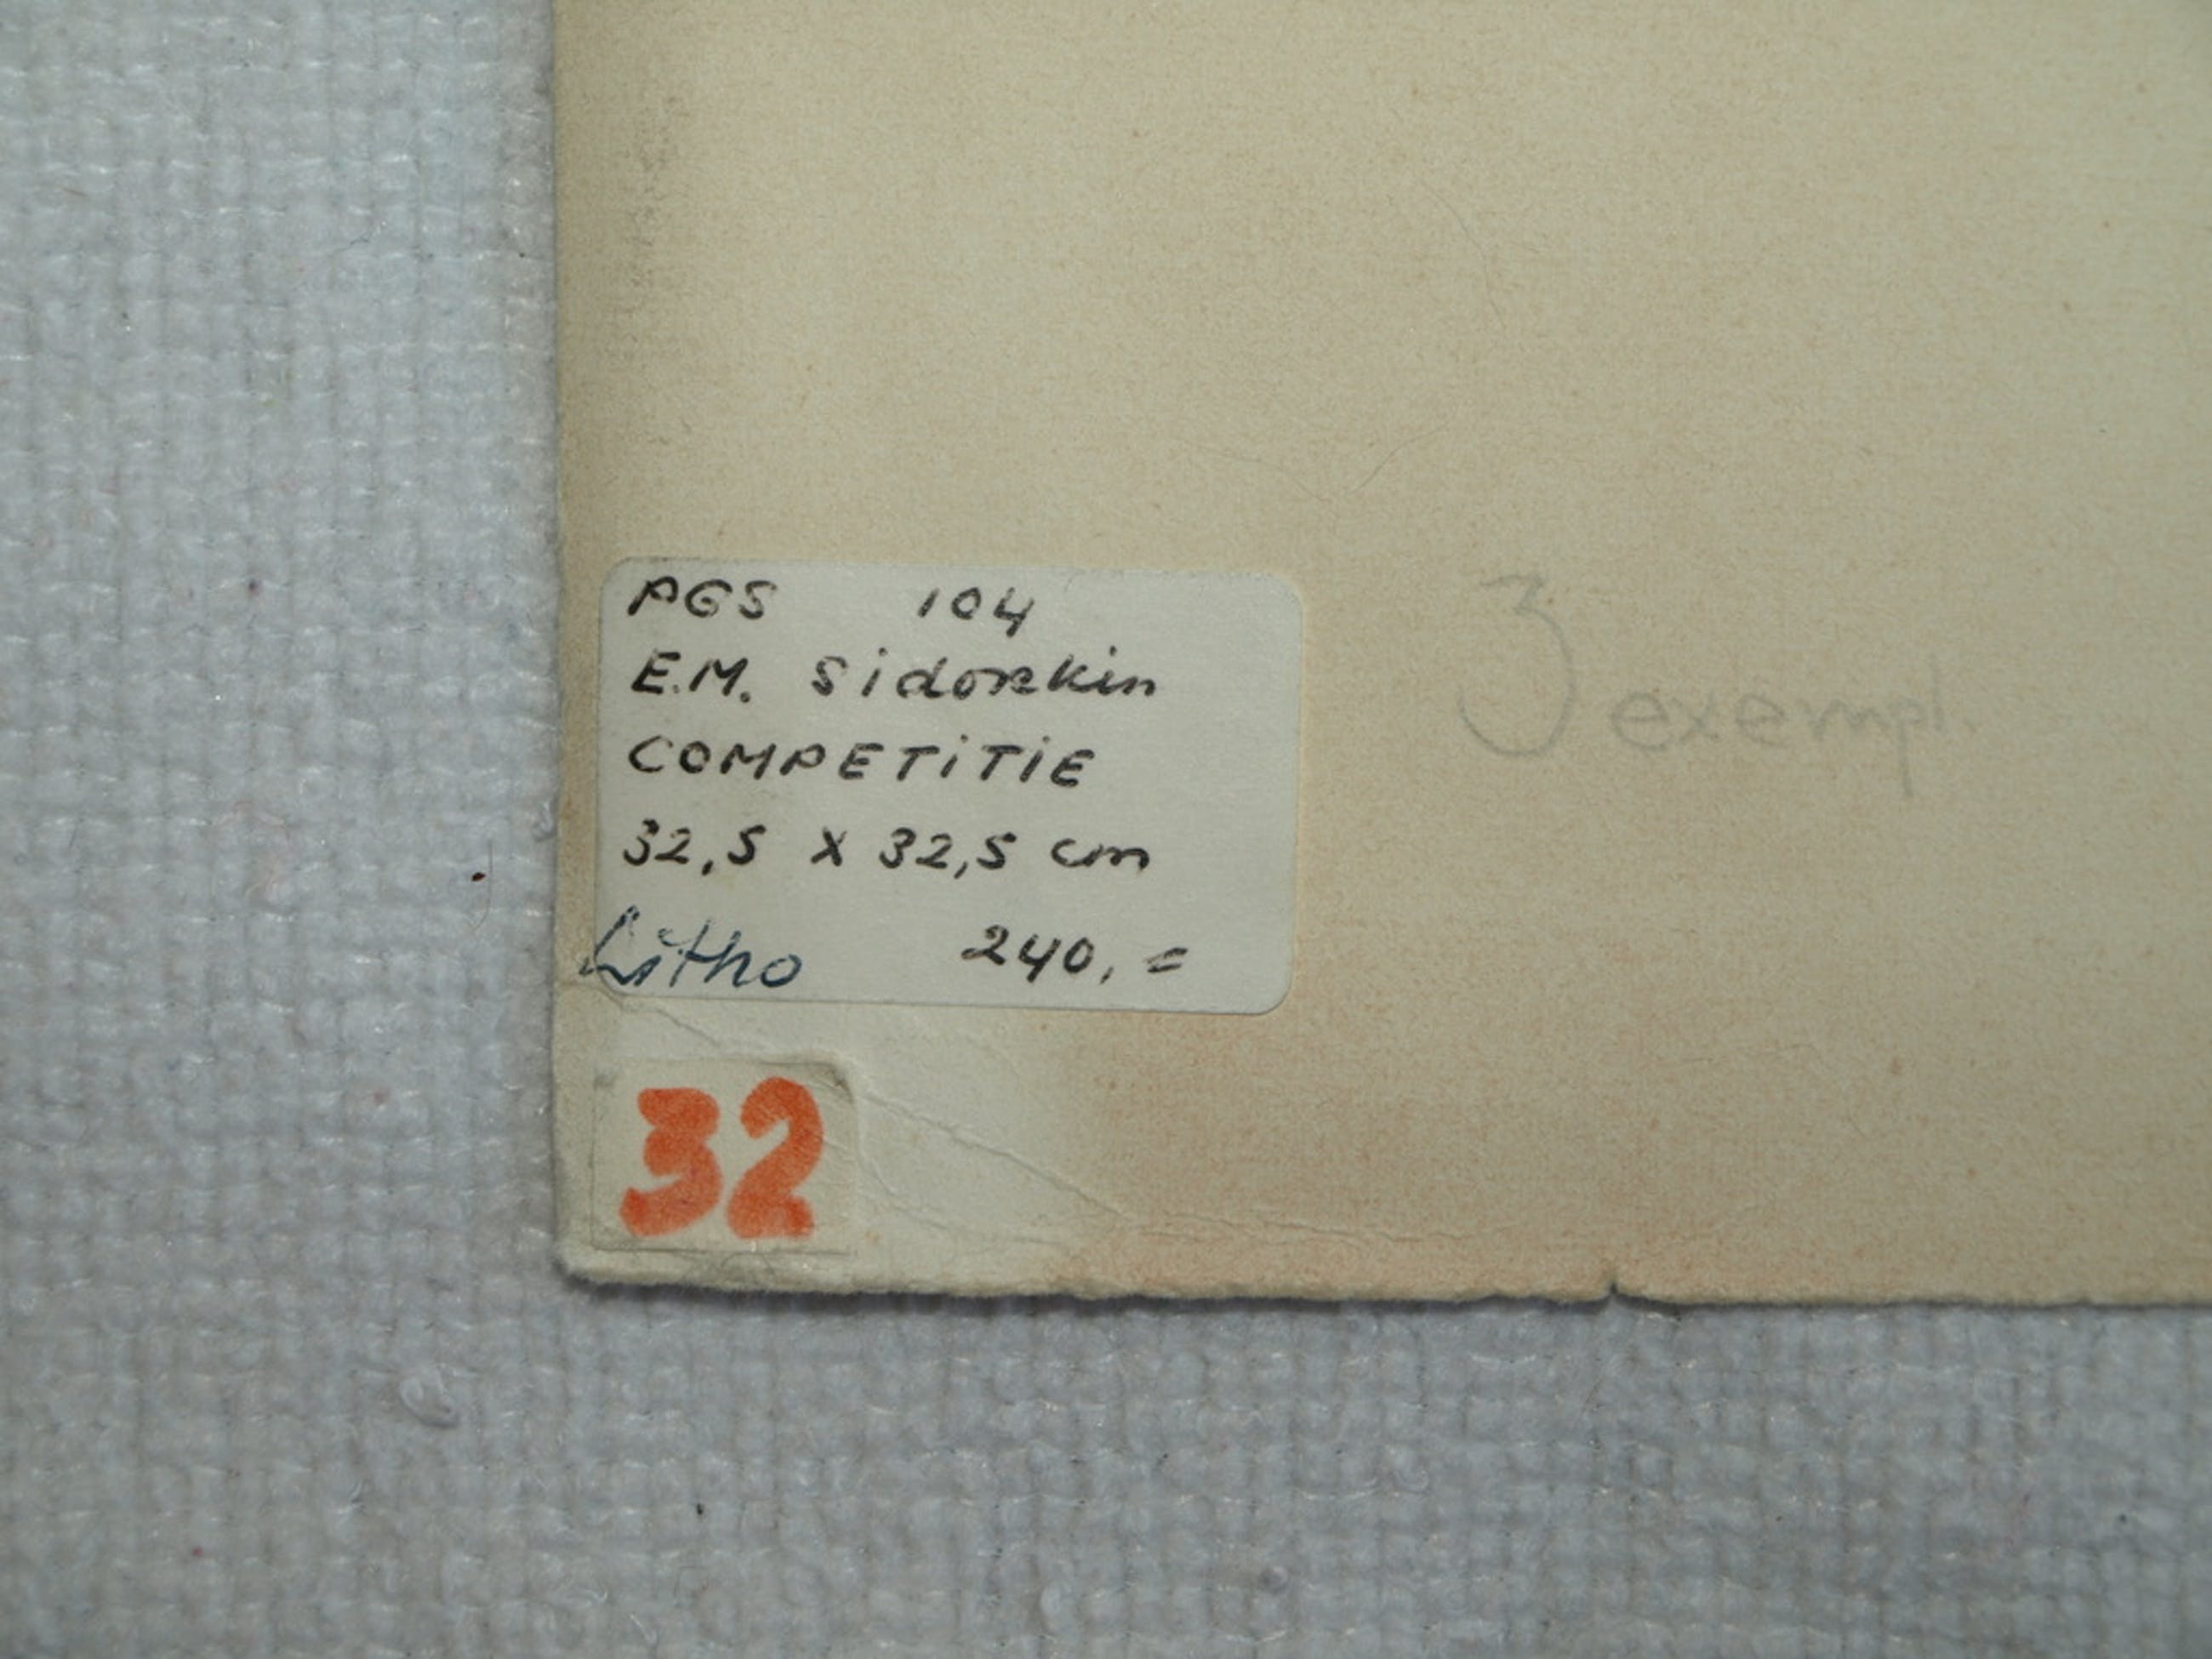 PGS 104
E.M. Sidorkin
COMPETITIE
32,5 X 32,5 cm
Litho 240,=
3 exempl.
32